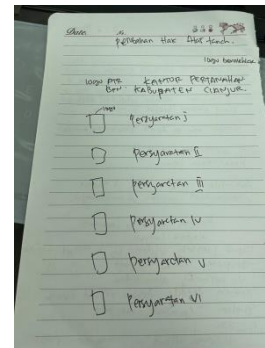 Date
Peralihan Hak Atas tanah.
logo berAKHLAK
logo ATR KANTOR PERTANAHAN
BPN KABUPATEN CIANJUR.
logo
Persyaratan I
Persyaratan II
Persyaratan III
Persyaratan IV
Persyaratan V
Persyaratan VI